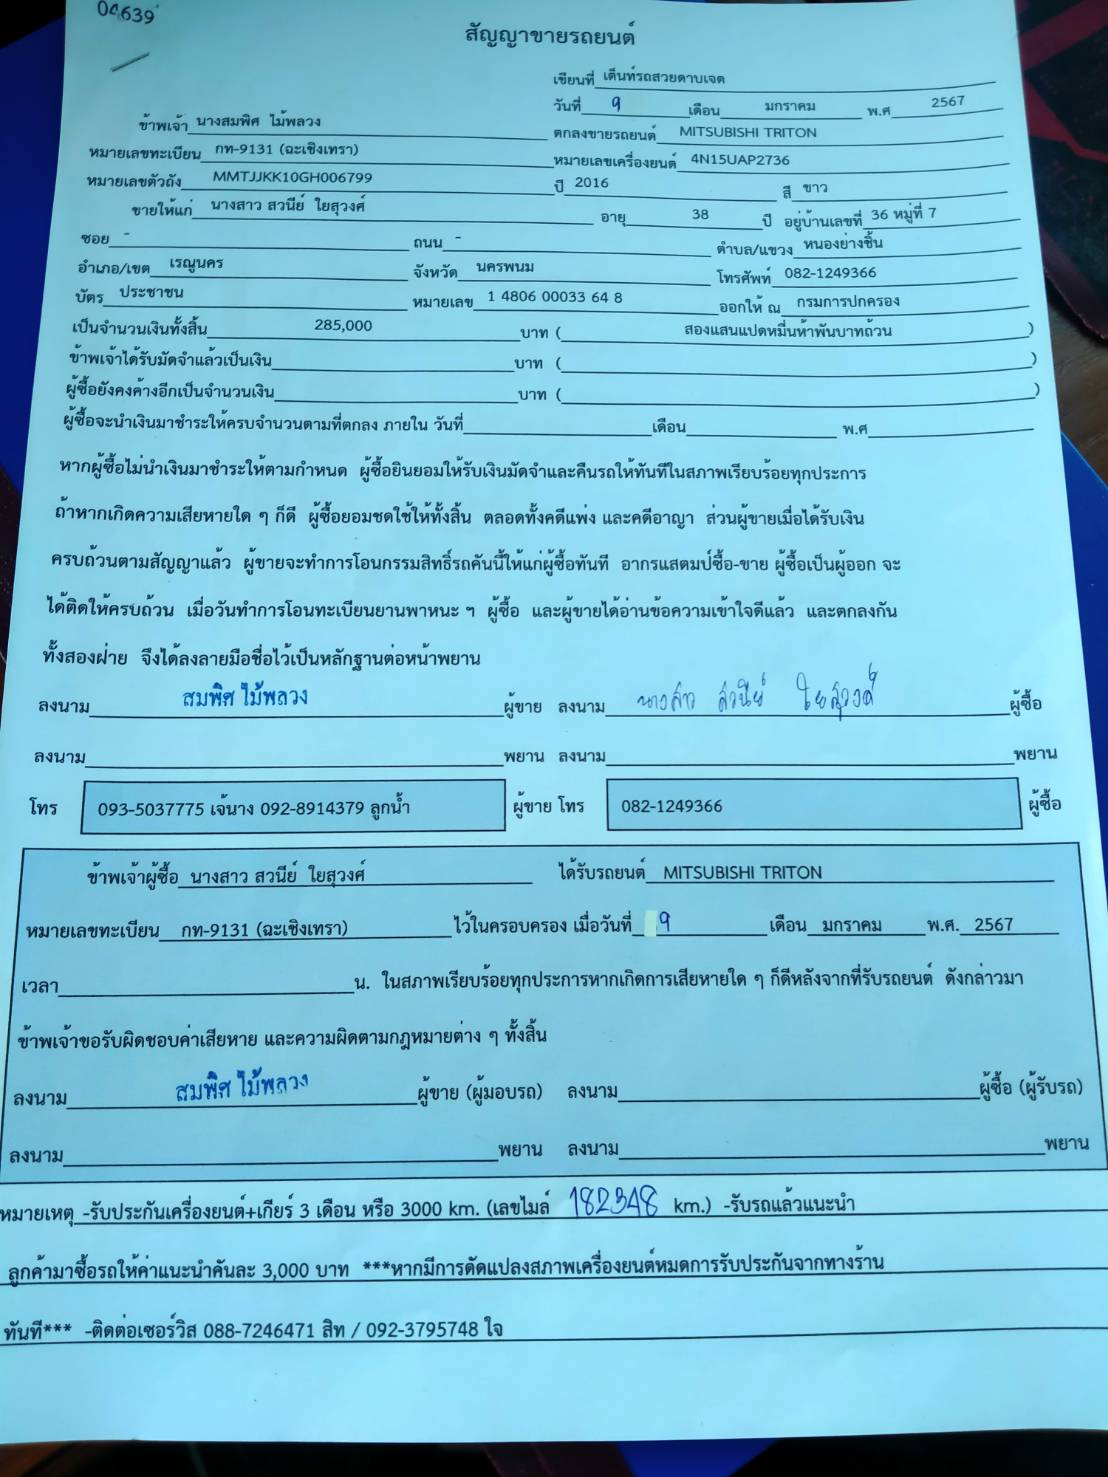 04639
สัญญาขายรถยนต์
เขียนที่ เต็นท์รถสวยดาบเจต
วันที่ 9 เดือน มกราคม พ.ศ 2567
ข้าพเจ้า นางสมพิศ ไม้พลวง ตกลงขายรถยนต์ MITSUBISHI TRITON
หมายเลขทะเบียน กท-9131 (ฉะเชิงเทรา) หมายเลขเครื่องยนต์ 4N15UAP2736
หมายเลขตัวถัง MMTJJKK10GH006799 ปี 2016 สี ขาว
ขายให้แก่ นางสาว สวนีย์ ใยสุวงศ์ อายุ 38 ปี อยู่บ้านเลขที่ 36 หมู่ที่ 7
ซอย - ถนน - ตำบล/แขวง หนองย่างชิ้น
อำเภอ/เขต เรณูนคร จังหวัด นครพนม โทรศัพท์ 082-1249366
บัตร ประชาชน หมายเลข 1 4806 00033 64 8 ออกให้ ณ กรมการปกครอง
เป็นจำนวนเงินทั้งสิ้น 285,000 บาท ( สองแสนแปดหมื่นห้าพันบาทถ้วน )
ข้าพเจ้าได้รับมัดจำแล้วเป็นเงิน บาท ( )
ผู้ซื้อยังคงค้างอีกเป็นจำนวนเงิน บาท ( )
ผู้ซื้อจะนำเงินมาชำระให้ครบจำนวนตามที่ตกลง ภายใน วันที่ เดือน พ.ศ
หากผู้ซื้อไม่นำเงินมาชำระให้ตามกำหนด ผู้ซื้อยินยอมให้รับเงินมัดจำและคืนรถให้ทันทีในสภาพเรียบร้อยทุกประการ
ถ้าหากเกิดความเสียหายใด ๆ ก็ดี ผู้ซื้อยอมชดใช้ให้ทั้งสิ้น ตลอดทั้งคดีแพ่ง และคดีอาญา ส่วนผู้ขายเมื่อได้รับเงิน
ครบถ้วนตามสัญญาแล้ว ผู้ขายจะทำการโอนกรรมสิทธิ์รถคันนี้ให้แก่ผู้ซื้อทันที อากรแสตมป์ซื้อ-ขาย ผู้ซื้อเป็นผู้ออก จะ
ได้ติดให้ครบถ้วน เมื่อวันทำการโอนทะเบียนยานพาหนะ ฯ ผู้ซื้อ และผู้ขายได้อ่านข้อความเข้าใจดีแล้ว และตกลงกัน
ทั้งสองฝ่าย จึงได้ลงลายมือชื่อไว้เป็นหลักฐานต่อหน้าพยาน
ลงนาม สมพิศ ไม้พลวง ผู้ขาย ลงนาม นางสาว สวนีย์ ใยสุวงศ์ ผู้ซื้อ
ลงนาม พยาน ลงนาม พยาน
โทร 093-5037775 เจ้นาง 092-8914379 ลูกน้ำ ผู้ขาย โทร 082-1249366 ผู้ซื้อ
ข้าพเจ้าผู้ซื้อ นางสาว สวนีย์ ใยสุวงศ์ ได้รับรถยนต์ MITSUBISHI TRITON
หมายเลขทะเบียน กท-9131 (ฉะเชิงเทรา) ไว้ในครอบครอง เมื่อวันที่ 9 เดือน มกราคม พ.ศ. 2567
เวลา น. ในสภาพเรียบร้อยทุกประการหากเกิดการเสียหายใด ๆ ก็ดีหลังจากที่รับรถยนต์ ดังกล่าวมา
ข้าพเจ้าขอรับผิดชอบค่าเสียหาย และความผิดตามกฎหมายต่าง ๆ ทั้งสิ้น
ลงนาม สมพิศ ไม้พลวง ผู้ขาย (ผู้มอบรถ) ลงนาม ผู้ซื้อ (ผู้รับรถ)
ลงนาม พยาน ลงนาม พยาน
หมายเหตุ -รับประกันเครื่องยนต์+เกียร์ 3 เดือน หรือ 3000 km. (เลขไมล์ 182348 km.) -รับรถแล้วแนะนำ
ลูกค้ามาซื้อรถให้ค่าแนะนำคันละ 3,000 บาท ***หากมีการดัดแปลงสภาพเครื่องยนต์หมดการรับประกันจากทางร้าน
ทันที*** -ติดต่อเซอร์วิส 088-7246471 สิท / 092-3795748 ใจ